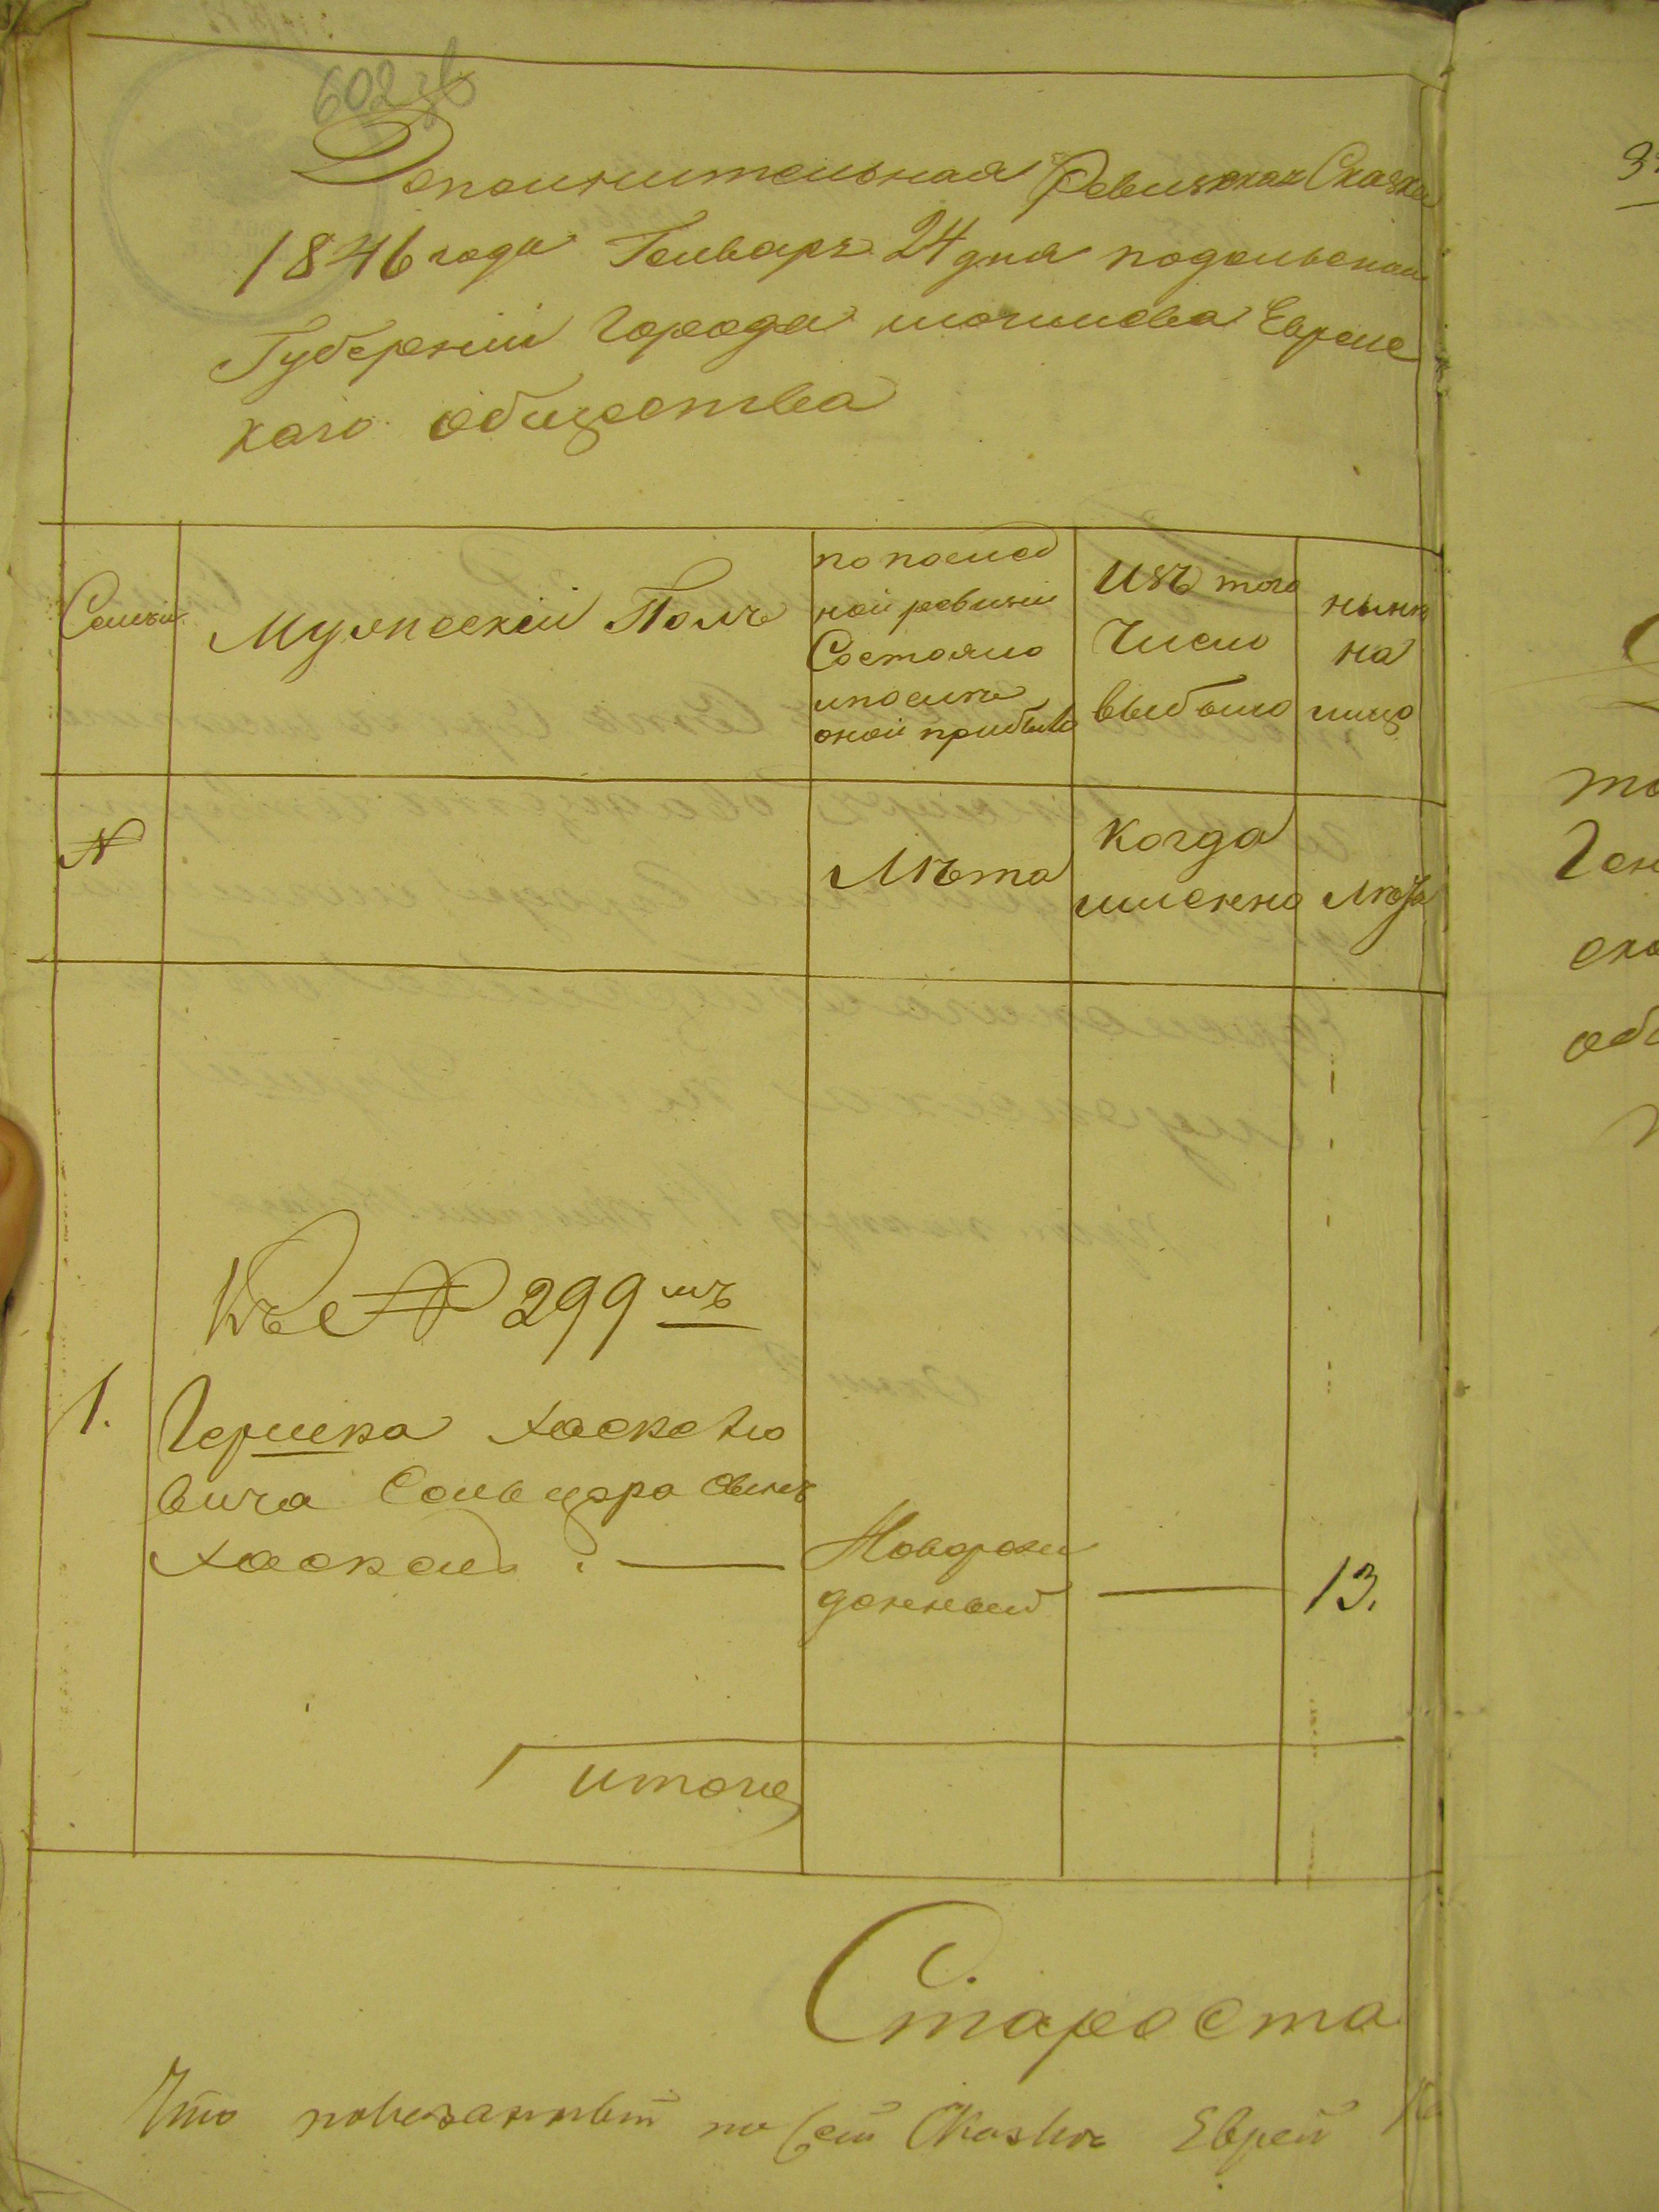 602 зв
Дополнительная Ревизкая Сказка
1846 года Генваря 24 дня подольской
Губернии Города могилева Еврейс
каго общества
Семьи
Мужеский Полъ
по послед
ной ревизии
Состояло
и после
оной прибыло
Изъ того
Число
выбыло
ныне
на
лицо
№
Лета
когда
именно
Лета
Къ № 299 мъ
1.
Гершка Хаскелю
вича Сельцера сынъ
Хаскель. —
Новорож
денный
—
13.
итого
Староста
Что показанный по сей Сказке Еврей